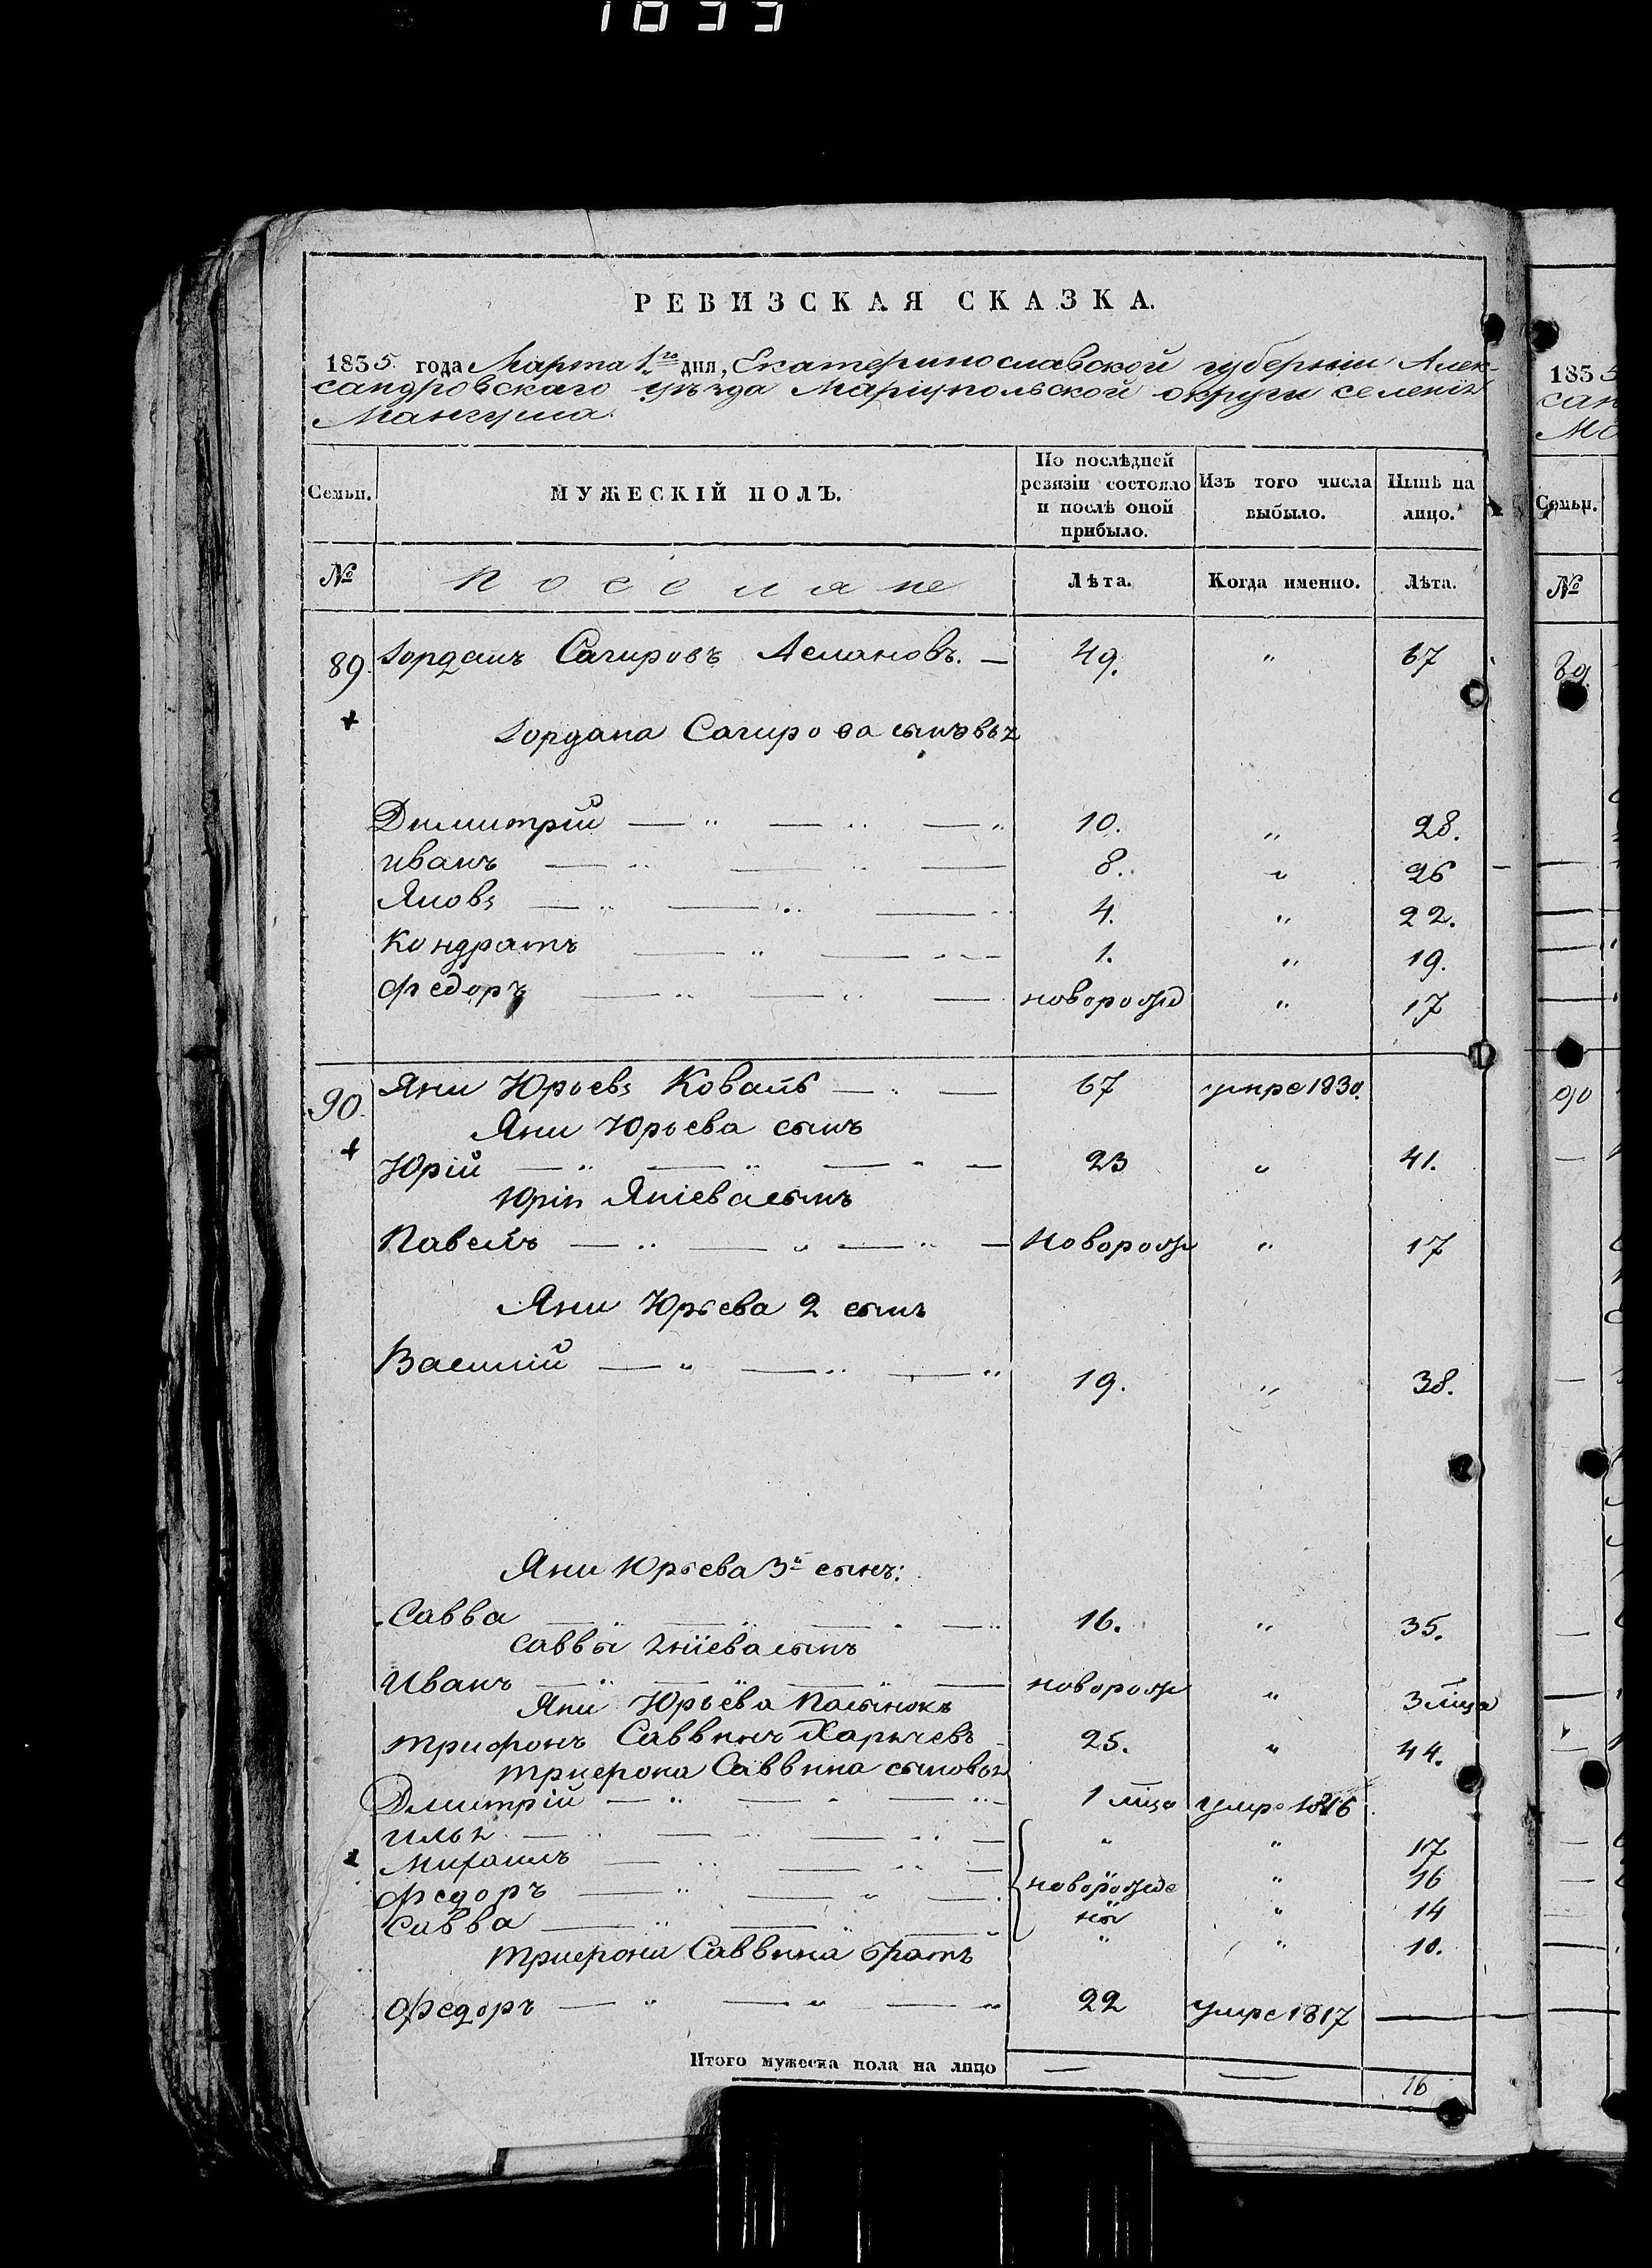 1835
РЕВИЗСКАЯ СКАЗКА.
1835 года Марта 1го дня, Екатеринославской губерніи Алек-
сандровскаго уѣзда Маріупольской округи селенія
Мангуша
Семьи. МУЖЕСКІЙ ПОЛЪ. По послѣдней ревизіи состояло и послѣ оной прибыло. Изъ того числа выбыло. Нынѣ на лицо.
№ Поселяне Лѣта. Когда именно. Лѣта.
89. Іорданъ Сагировъ Аслановъ. — 49. " 67
Іордана Сагирова сыновья
Димитрій 10. " 28.
Иванъ 8. " 26
Яковъ 4. " 22.
Кондратъ 1. " 19.
Федоръ новорожд " 17
90. Яни Юрьевъ Коваль 67 умре 1830.
Яни Юрьева сынъ
Юрій 23 " 41.
Юрія Яніева сынъ
Павелъ новорож " 17
Яни Юрьева 2 сынъ
Василій 19. " 38.
Яни Юрьева 3й сынъ:
Савва 16. " 35.
Саввы Яніева сынъ
Иванъ новорож " 3 мца
Яни Юрьева Пасынокъ
Трифонъ Саввинъ 25. " 44.
Трифона Саввина сыновья
Дмитрій 1 мца умре 1816
Илья " " 17
Михаилъ " 16
Федоръ новорожде " 14
Савва ны " 10.
Трифона Саввина братъ
Федоръ 22 умре 1817 —
Итого мужеска пола на лицо — — 16
1835
сан
Ма
Семьи.
№
89.
90